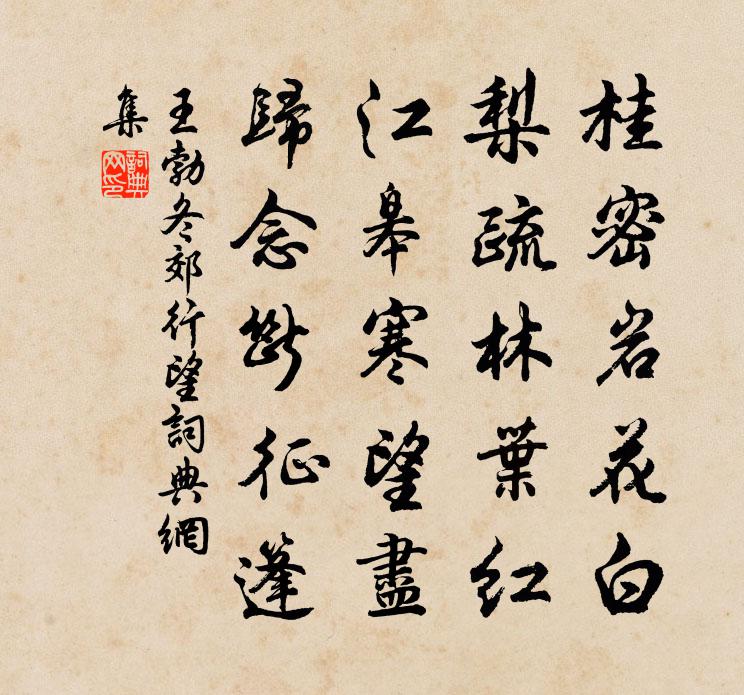 桂密岩花白
梨疏林葉紅
江皋寒望盡
歸念斷征篷
王勃冬郊行望詞典網
集
詞典
网印